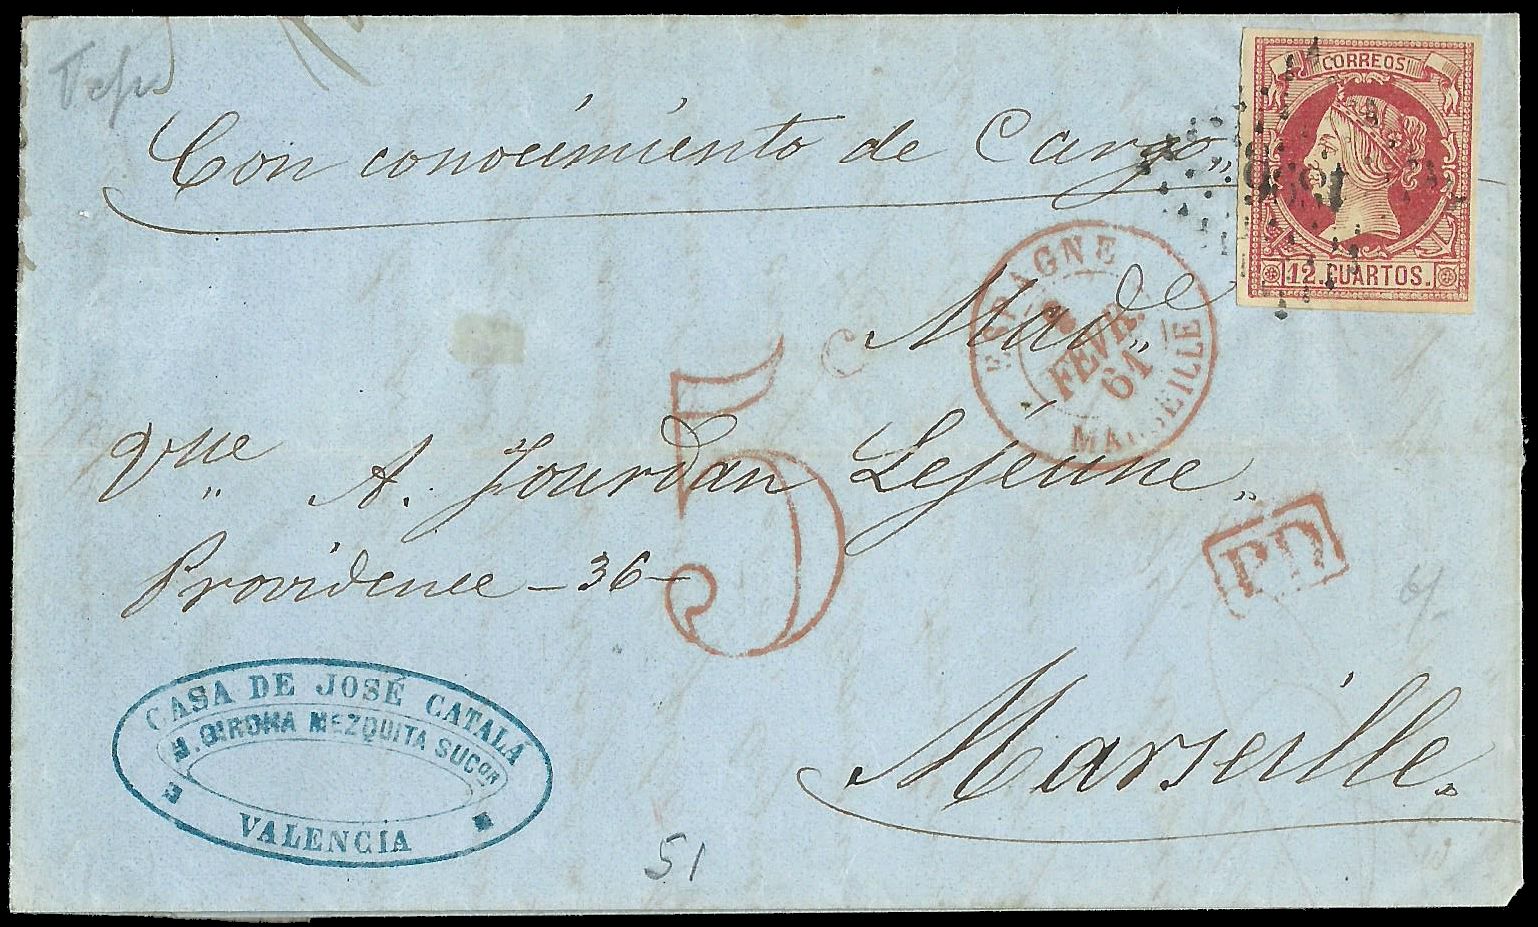 CORREOS
Con conocimiento de Cargo„
1896
12 CUARTOS.
ESPAGNE
FEVR.
61
MARSEILLE
Mad„
Vve A. Jourdan Lejeune„
5 C
Providence - 36 -
PD
Marseille.
CASA DE JOSÉ CATALÁ
GIRONA MEZQUITA SUCOR
VALENCIA
51